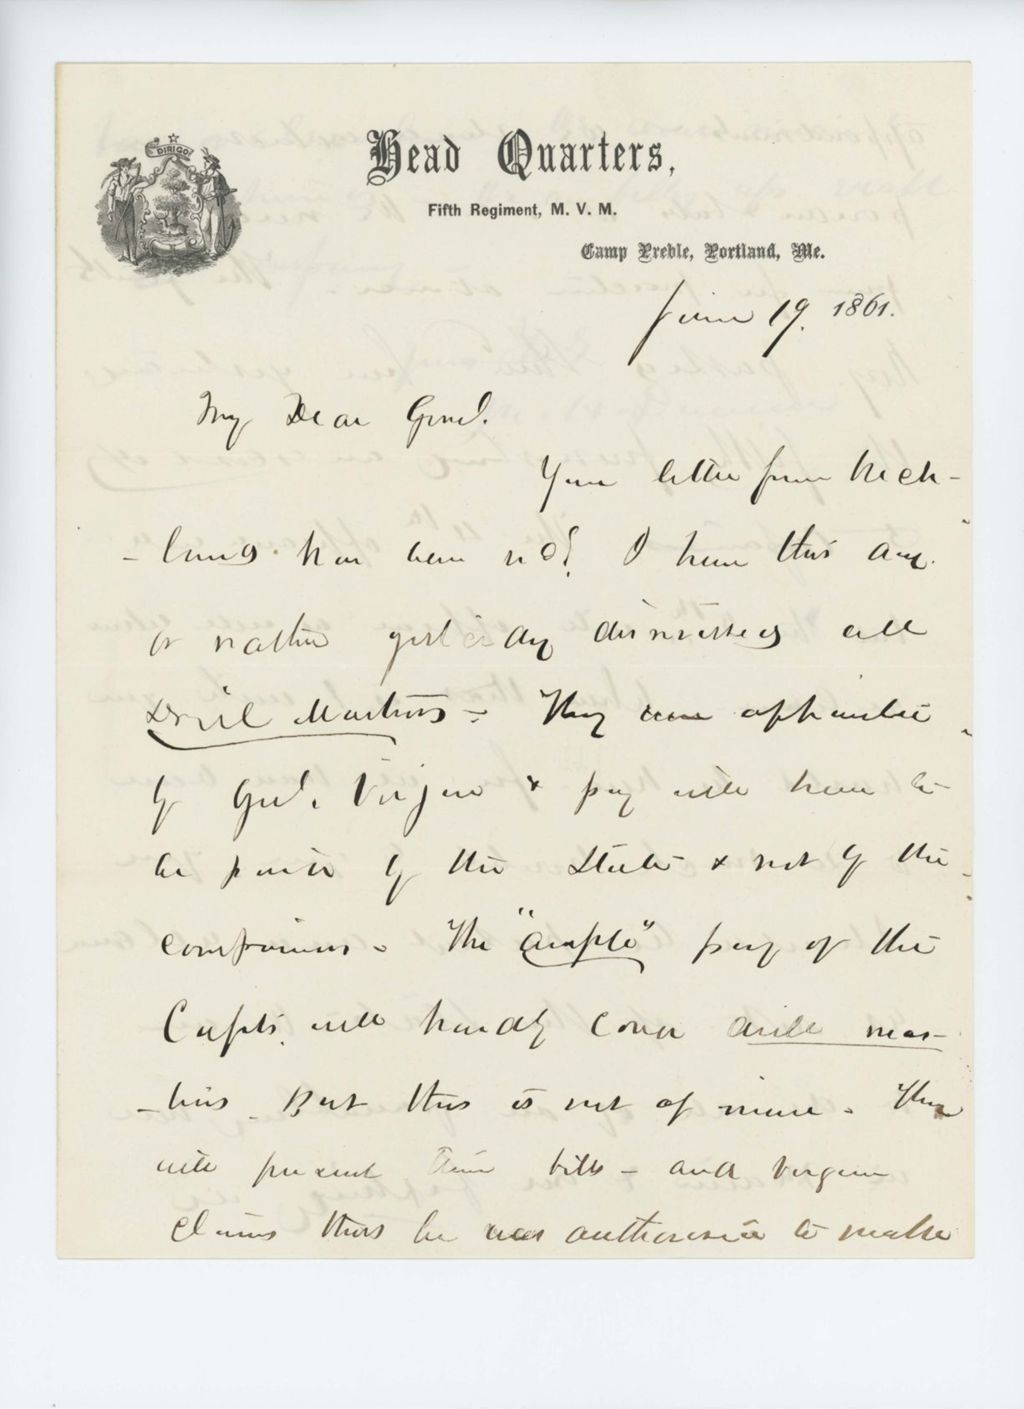 DIRIGO
Head Quarters,
Fifth Regiment, M. V. M.
Camp Preble, Portland, Me.
June 19. 1861.
My Dear Genl.
Your letter from Rock-
-land has been recd. I have this day.
or rather yesterday dismissed all
Drill Masters - They were appointed
by Genl. Virgin & pay will have to
be paid by the State & not by the
companies - The "ample" pay of the
Capts. will hardly cover drill mas-
-ters. But this is not of mine - They
will present their bills - and Virgin
claims that he was authorized to make